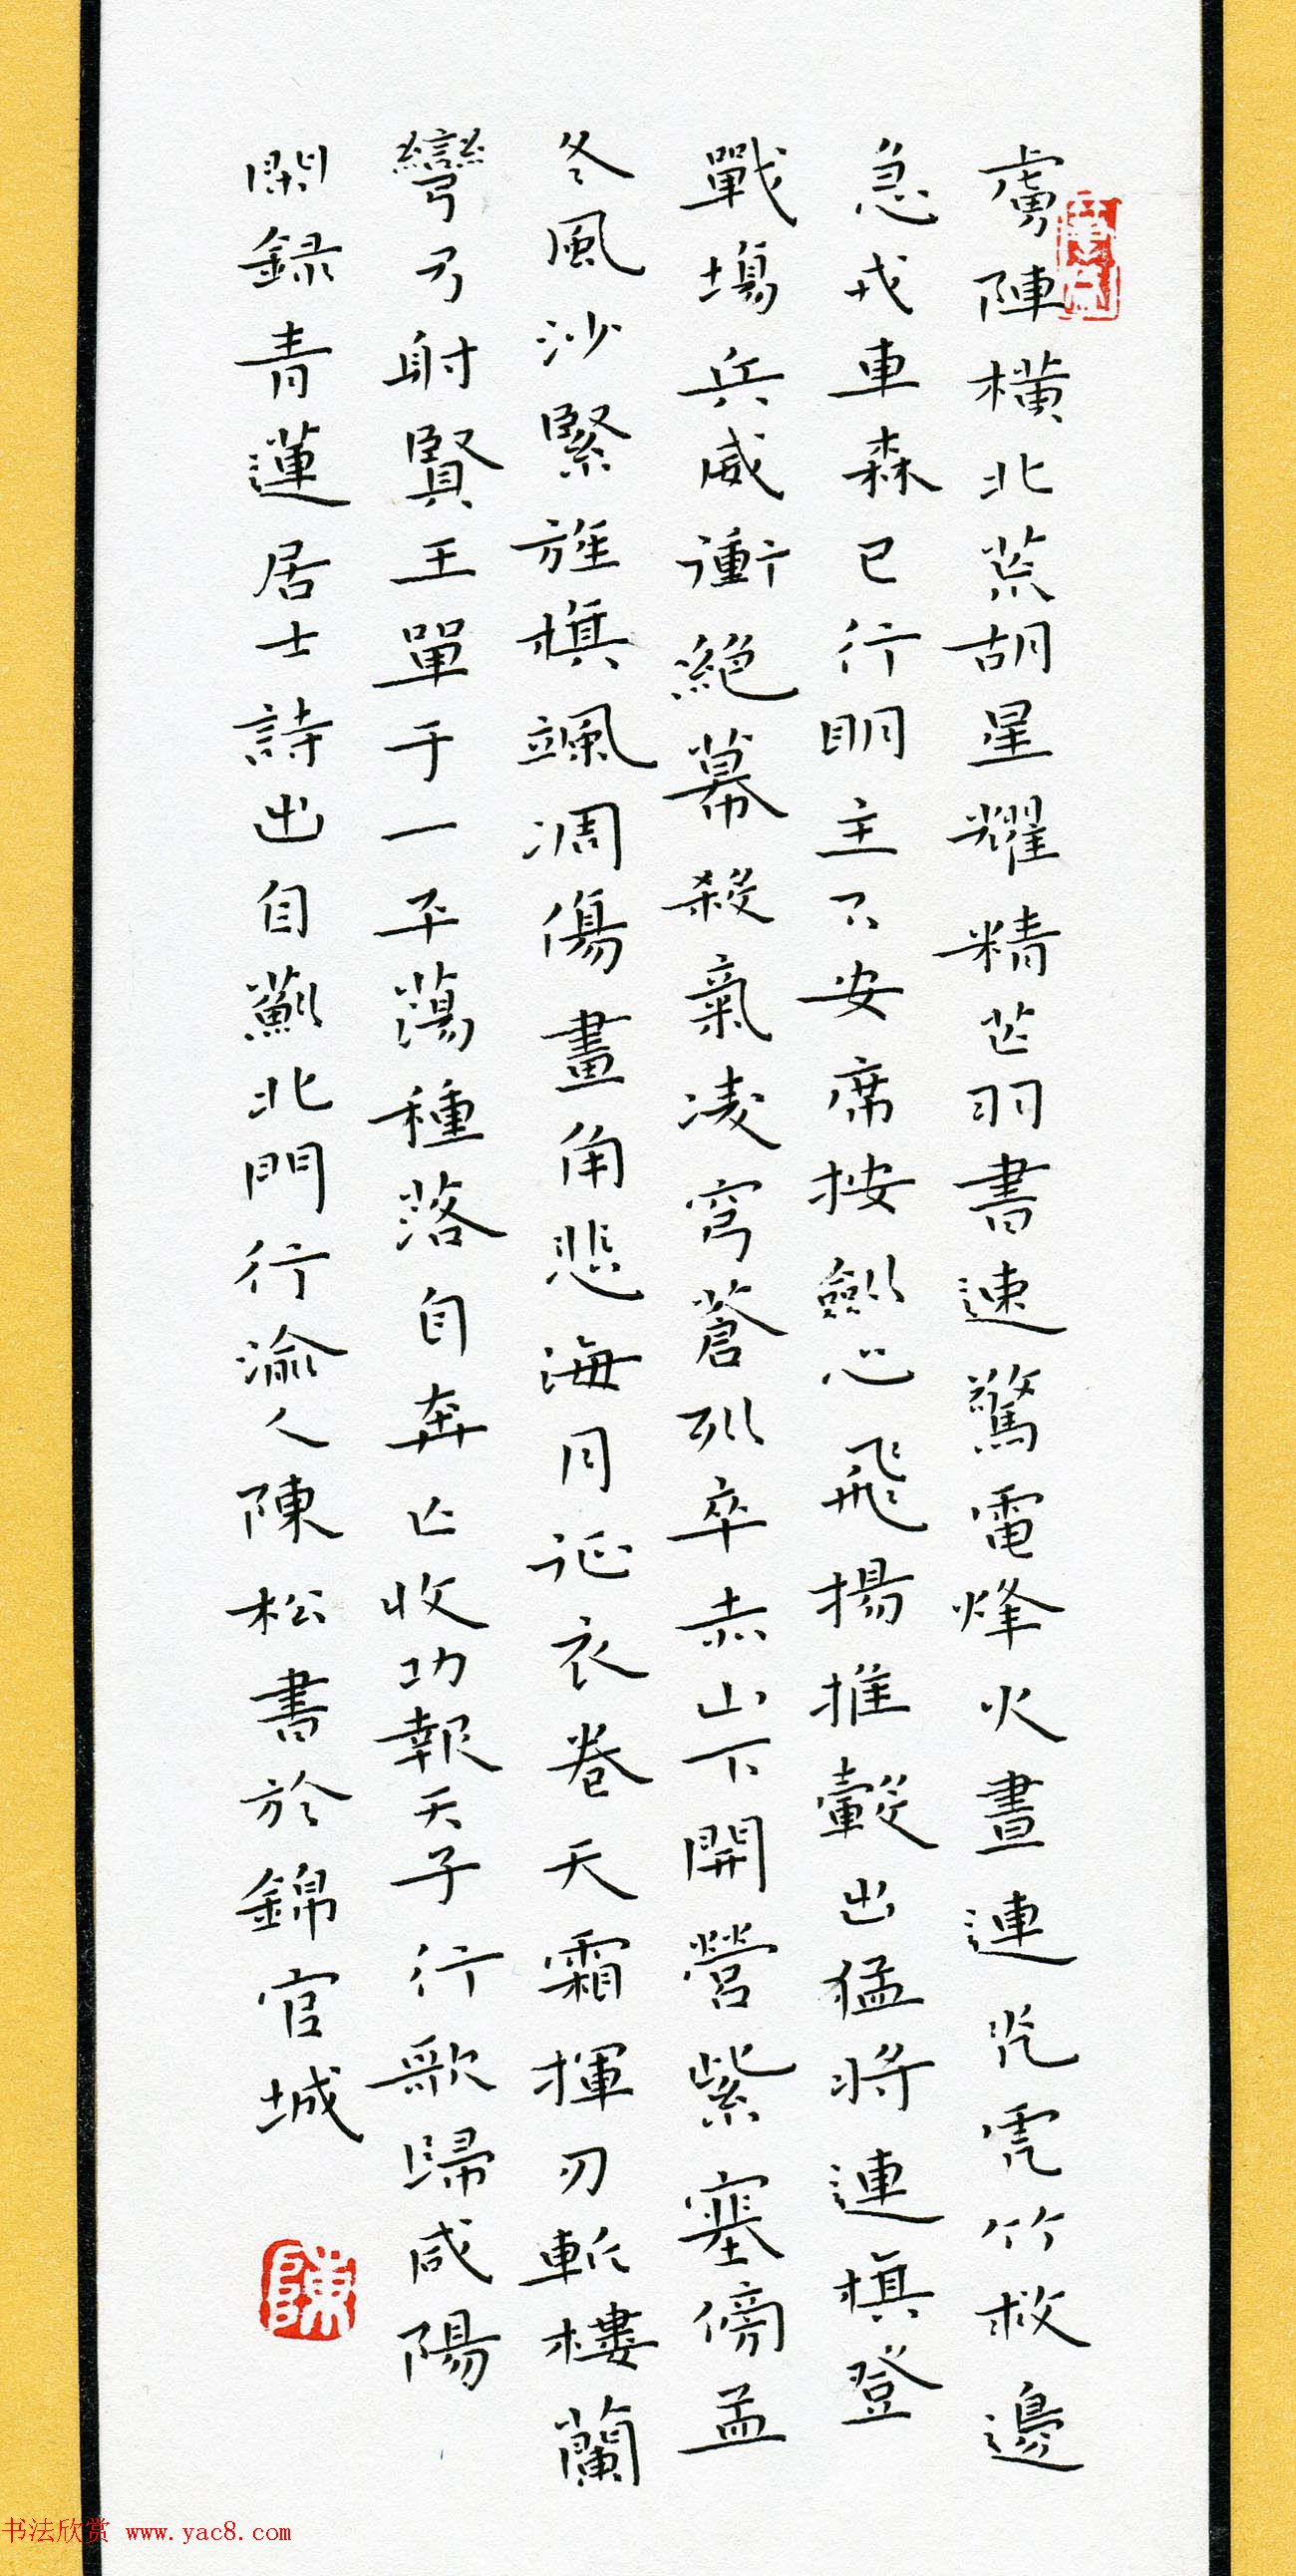 虜陣橫北荒胡星耀精芒羽書速驚電烽火晝連光虎竹救邊
急戎車森已行明主不安席按劍心飛揚推轂出猛將連旗登
戰場兵威衝絕幕殺氣凌穹蒼列卒赤山下開營紫塞傍孟
冬風沙緊旌旗颯凋傷畫角悲海月征衣卷天霜揮刃斬樓蘭
彎弓射賢王單于一平蕩種落自奔亡收功報天子行歌歸咸陽
閑録青蓮居士詩出自薊北門行渝人陳松書於錦官城
陳
书法欣赏 www.yac8.com